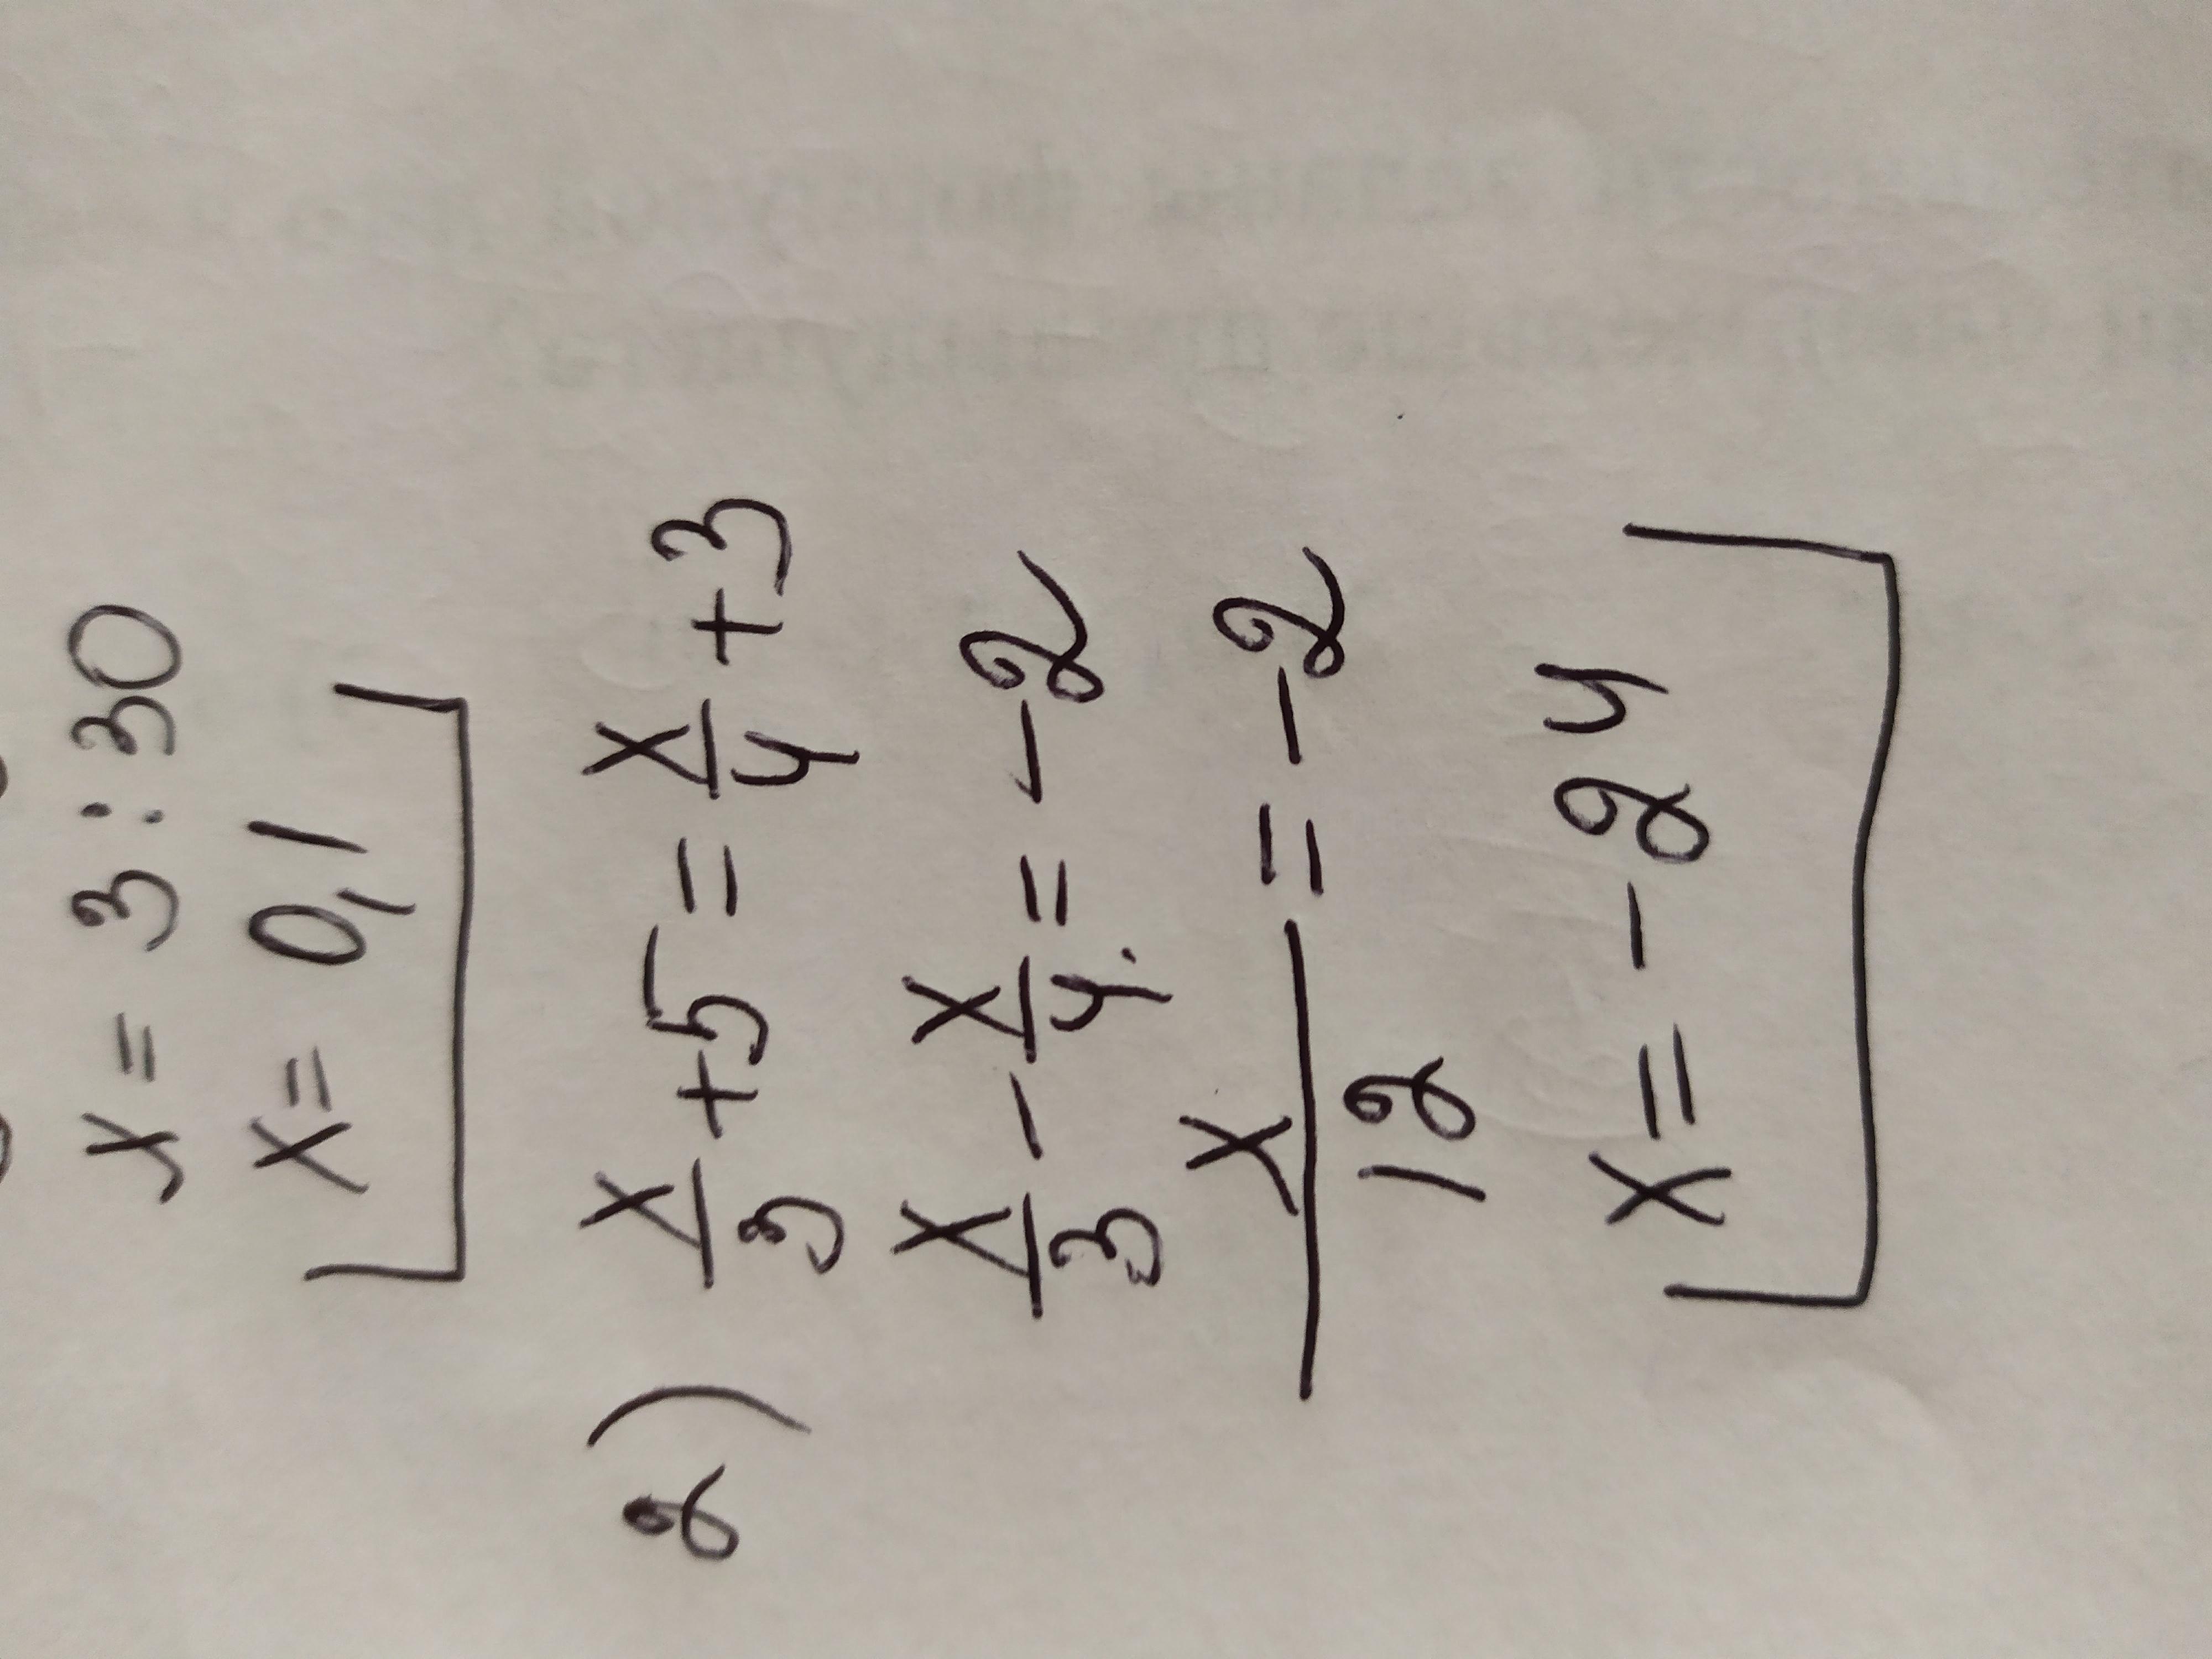 x = 3 : 30
x = 0,1
2) x/3 + 5 = x/4 + 3
x/3 - x/4 = -2
x/12 = -2
x = -24